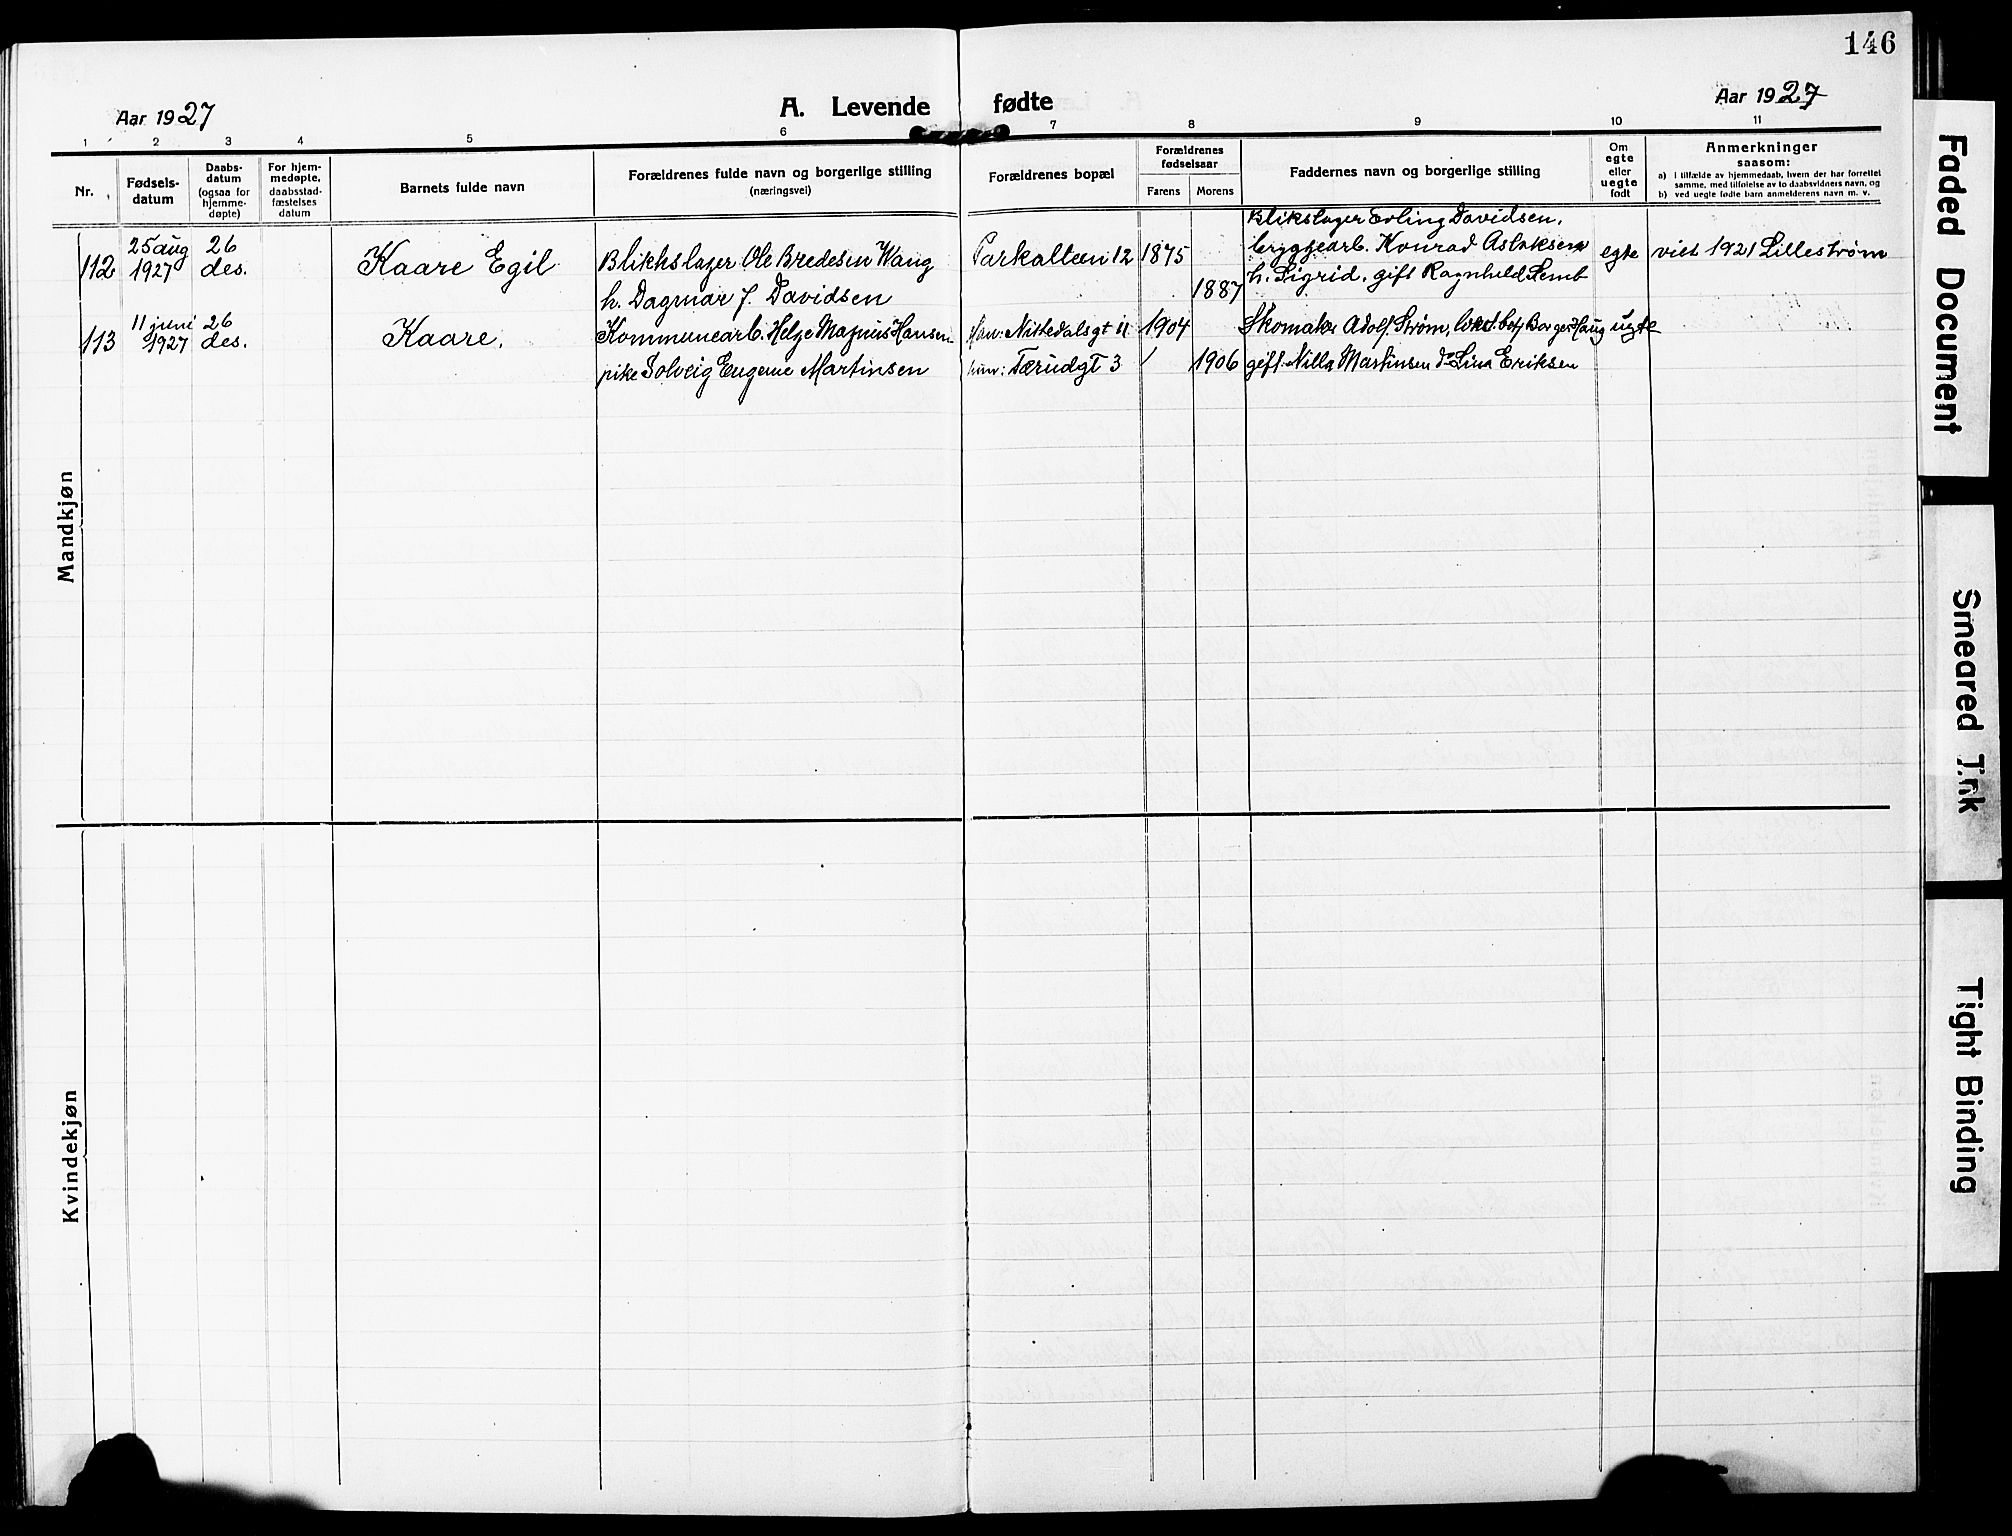 146
Aar 1927
A. Levende fødte
Aar 1927
1 2 3 4 5 6 7 8 9 10 11
Nr.
Fødsels-
datum
Daabs-
datum
(ogsaa for
hjemme-
døpte)
For hjem-
medøpte,
daabsstad-
fæstelses
datum
Barnets fulde navn
Forældrenes fulde navn og borgerlige stilling
(næringsvei)
Forældrenes bopæl
Forældrenes
fødselsaar
Farens Morens
Faddernes navn og borgerlige stilling
Om
egte
eller
uegte
født
Anmerkninger
saasom:
a) i tilfælde av hjemmedaab, hvem der har forrettet
samme, med tilføielse av to daabsvidners navn, og
b) ved uegte fødte barn anmelderens navn m. v.
Mandkjøn
112
25 aug
1927
26
des.
Kaare Egil
Blikkslager Ole Bredesen Wang
h. Dagmar J. Davidsen
Parkalleen 12
1875
1887
Blikslager Erling Davidsen,
bryggearb. Konrad Aslaksen
h. Sigrid, gift Ragnhild Lemb
egte
viet 1921 Lillestrøm
113
11 juni
1927
26
des.
Kaare,
Kommunearb. Helge Magnus Hansen
pike Solveig Eugenie Martinsen
Han: Nittedalsgt 11
hun: Tærudgt 3
1904
1906
Skomaker Adolf Strøm, Borger Haug
gift Nilla Martinsen do Lina Eriksen
ugte
Kvindekjøn
Faded Document
Smeared Ink
Tight Binding